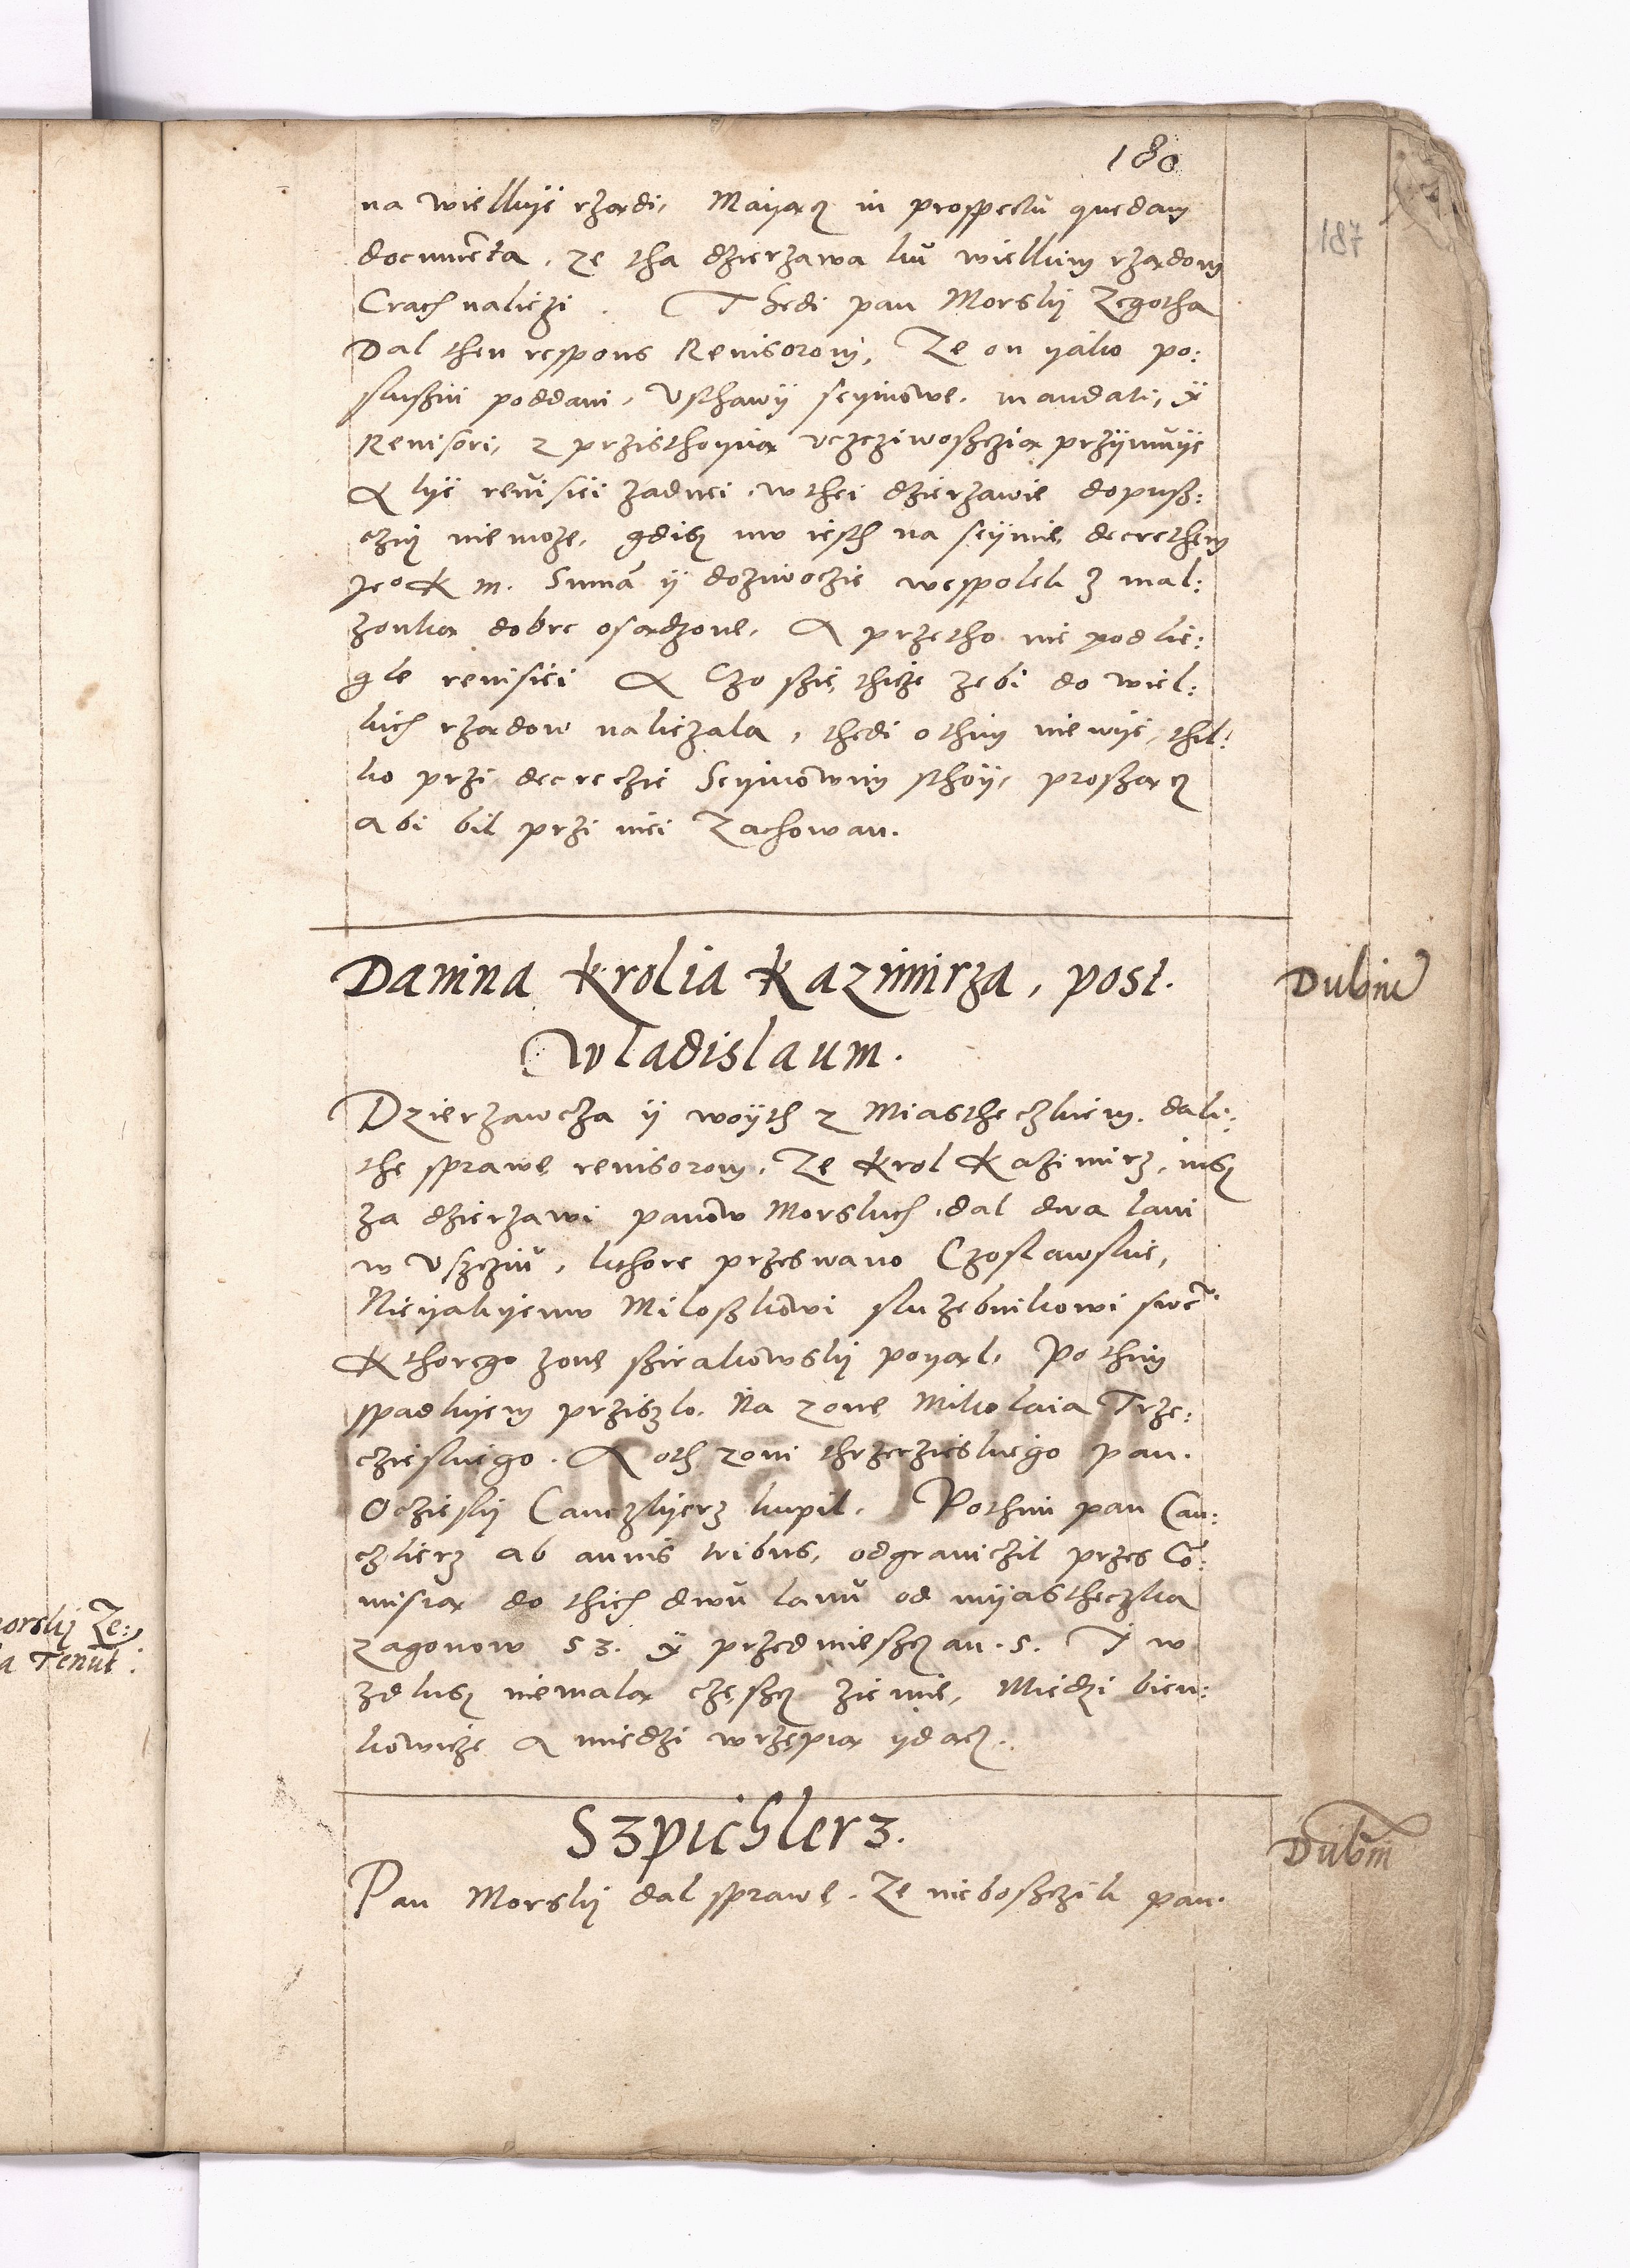 180
187
na wielkÿe rządi, Maÿącz in prospectu quedam
documenta, ze tha dzierzawa ku wielkim rządom
Crach nalieżi. Thedi pan Morskÿ Zegotha
Dal then respons Reuisorom, Ze on ÿako po:
slusżni poddani, Vsthawÿ seÿmowe, mandati, ÿ
Reuisori, z przisthoÿną vczcziwosżczią prżÿmuÿe
A lÿe reuisiei żadnei, w thei dzierżawie dopusż:
czÿcz niemoże, gdisz mv iesth na seÿmie, decrethem
Je° K m. Summa ÿ dożiwoczie wespolek z mal:
żonką dobre osądzone, A przetho nie podlie:
gle reuisiei A Czo sżię thicże żebi do wiel:
kich rządow nalieżala, thedi othim niewÿe, thil:
ko prżi decreczie Seÿmowim sthoÿ, proszącz
Abi bil prżi niei Zachowan.
Danina Krolia Kazimirza, post.
Wladislaum.
Dubin
Dzierżawcża ÿ woÿth z Miastheczkiem. dali:
the sprawe reuisorom, Ze Krol Kazimirz, iusz
za dzierżawi panow Morskich, dal dwa lani
w Vsżcziu, kthore przeswano Czoslawskie,
Nieÿakÿemv Milosżkowi służebnikowi swe°
Kthorego żone sżirakowskÿ poÿąl, Pothim
spadkÿem prżisżlo. Na zone Mikolaia Trże:
czieskiego. A oth żoni thrżeczieskiego pan.
Oczieskÿ Canczlÿerz kupil. Pothim pan Can:
czlierz ab annis tribus, odgranicżil przes Co:
misią do thich dwu lanu od mÿastheczka
zagonow 53. ÿ przedmiesżczan. 5. I w
żdlusz niemalą część żiemie, Miedżi bien:
kowicże A miedżi wrzępią ÿdącz.
Szpichlerz.
Dubin
Pan Morskÿ dal sprawe. Ze niebosżcżik pan.
morskÿ Ze:
a Tenut: